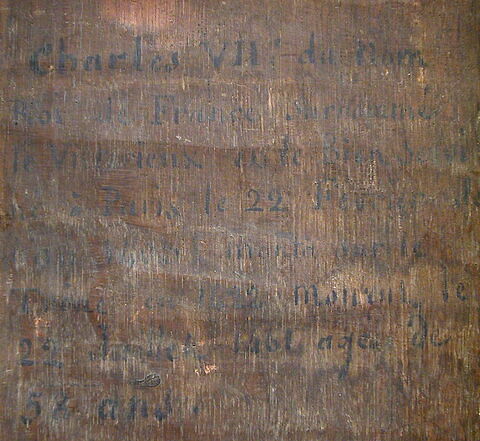 Charles VII.e du Nom
Roy de France Surnommé
le Victorieux et le Bien Servi
né à Paris le 22 Février de
l'an monta sur le
Trône en 1422 Mourut le
22 Juillet 1461 agé de
58 ans.